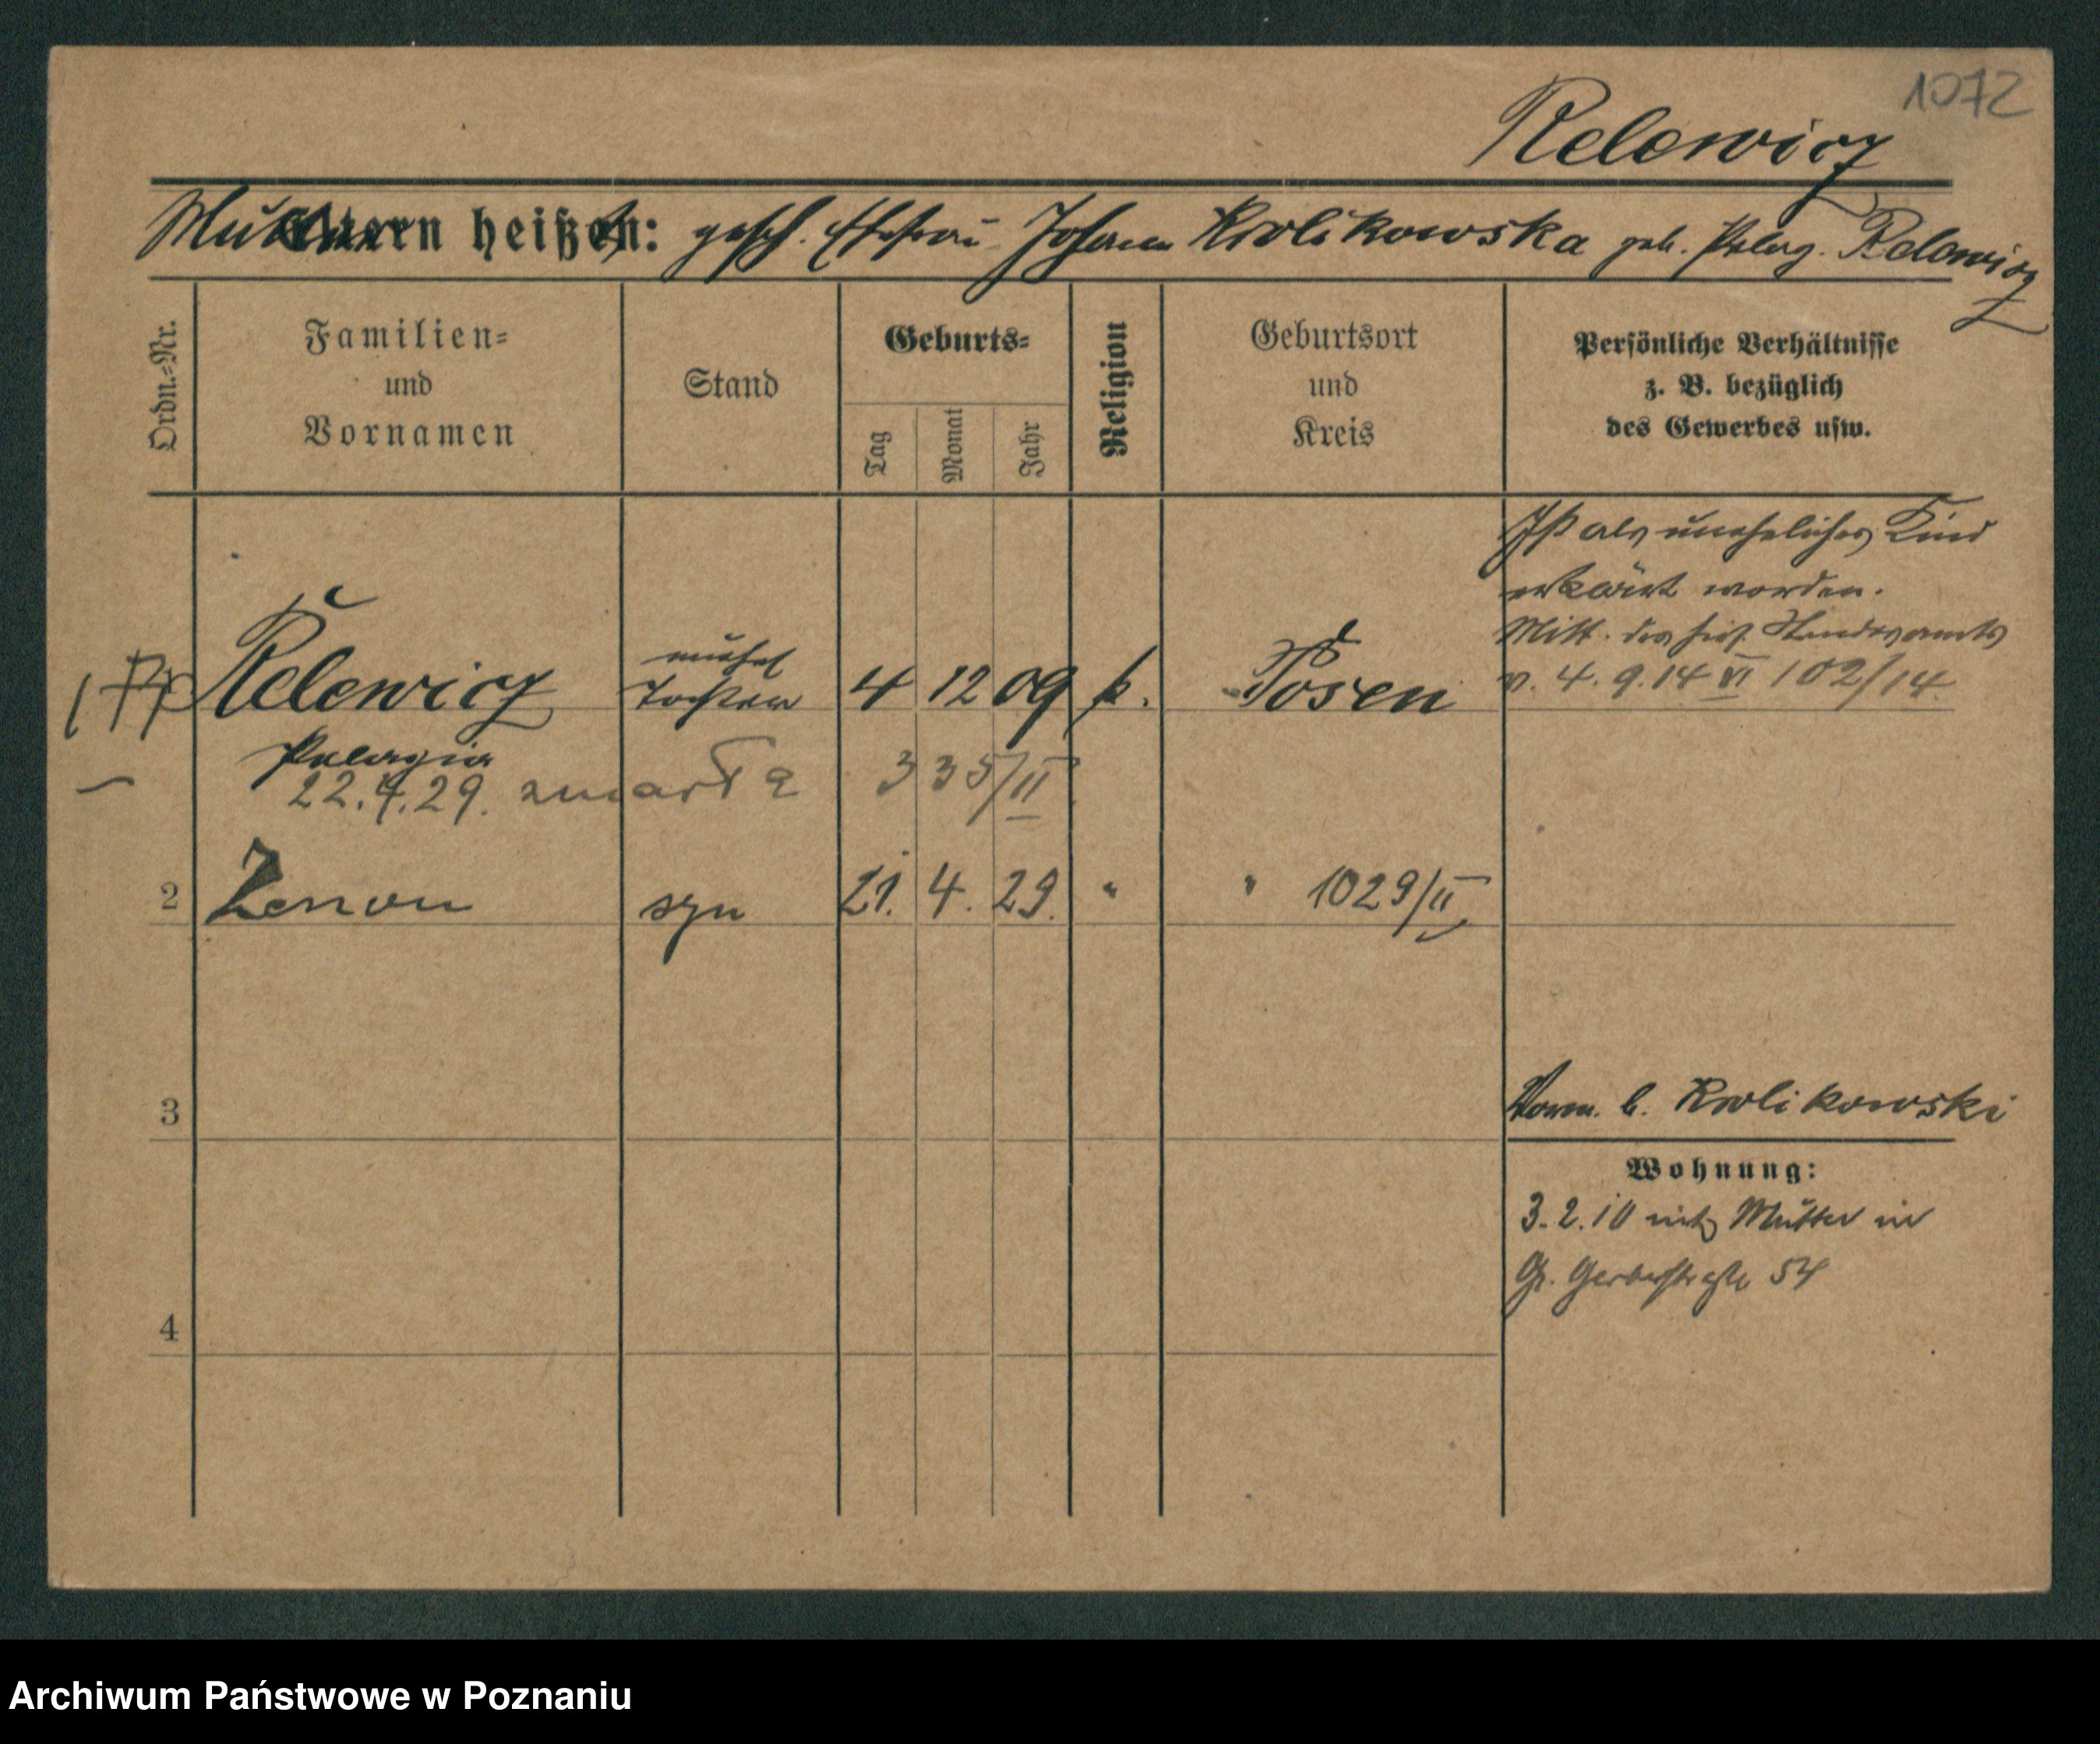 1072
Relewicz
Mutter heißt: gesch. Ehefrau Johanna Krolikowska geb. Pelag. Relewicz
Ordn.=Nr.
Familien=
und
Vornamen
Stand
Geburts=
Tag
Monat
Jahr
Religion
Geburtsort
und
Kreis
Persönliche Verhältnisse
z. B. bezüglich
des Gewerbes usw.
Ist als uneheliches Kind
erklärt worden.
Mitt. des hies. Standesamts
v. 4. 9. 14 VI 102/14.
Relewicz unehel Tochter 4 12 09 k. Posen
Pelagia
22.4.29. zmarła 335/II
2 Zenon syn 21. 4. 29. " " 1029/II
3
Vorm. b. Krolikowski
Wohnung:
3.2.10 mit Mutter in
Gr. Gerberstraße 54
4
Archiwum Państwowe w Poznaniu